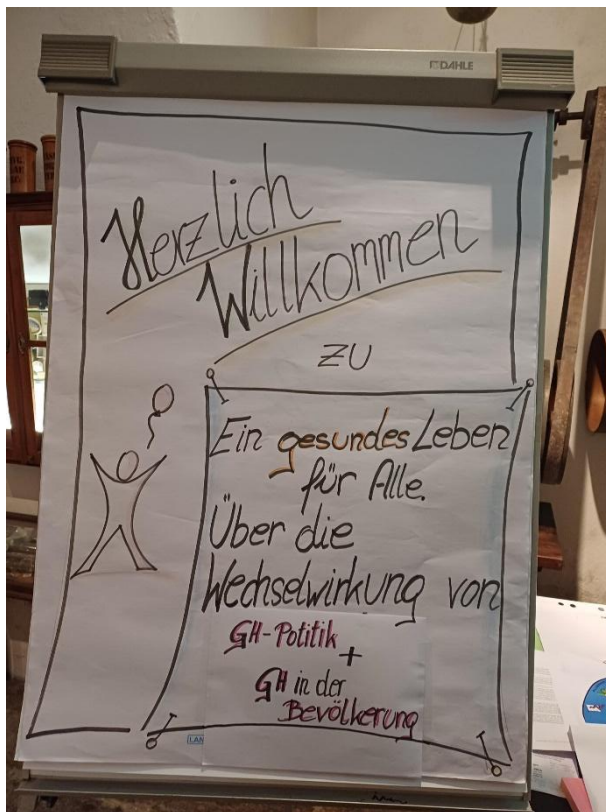 DAHLE
Herzlich
Willkommen
ZU
Ein gesundes Leben
für Alle.
Über die
Wechselwirkung von
GH-Potitik
+
GH in der
Bevölkerung
LAN